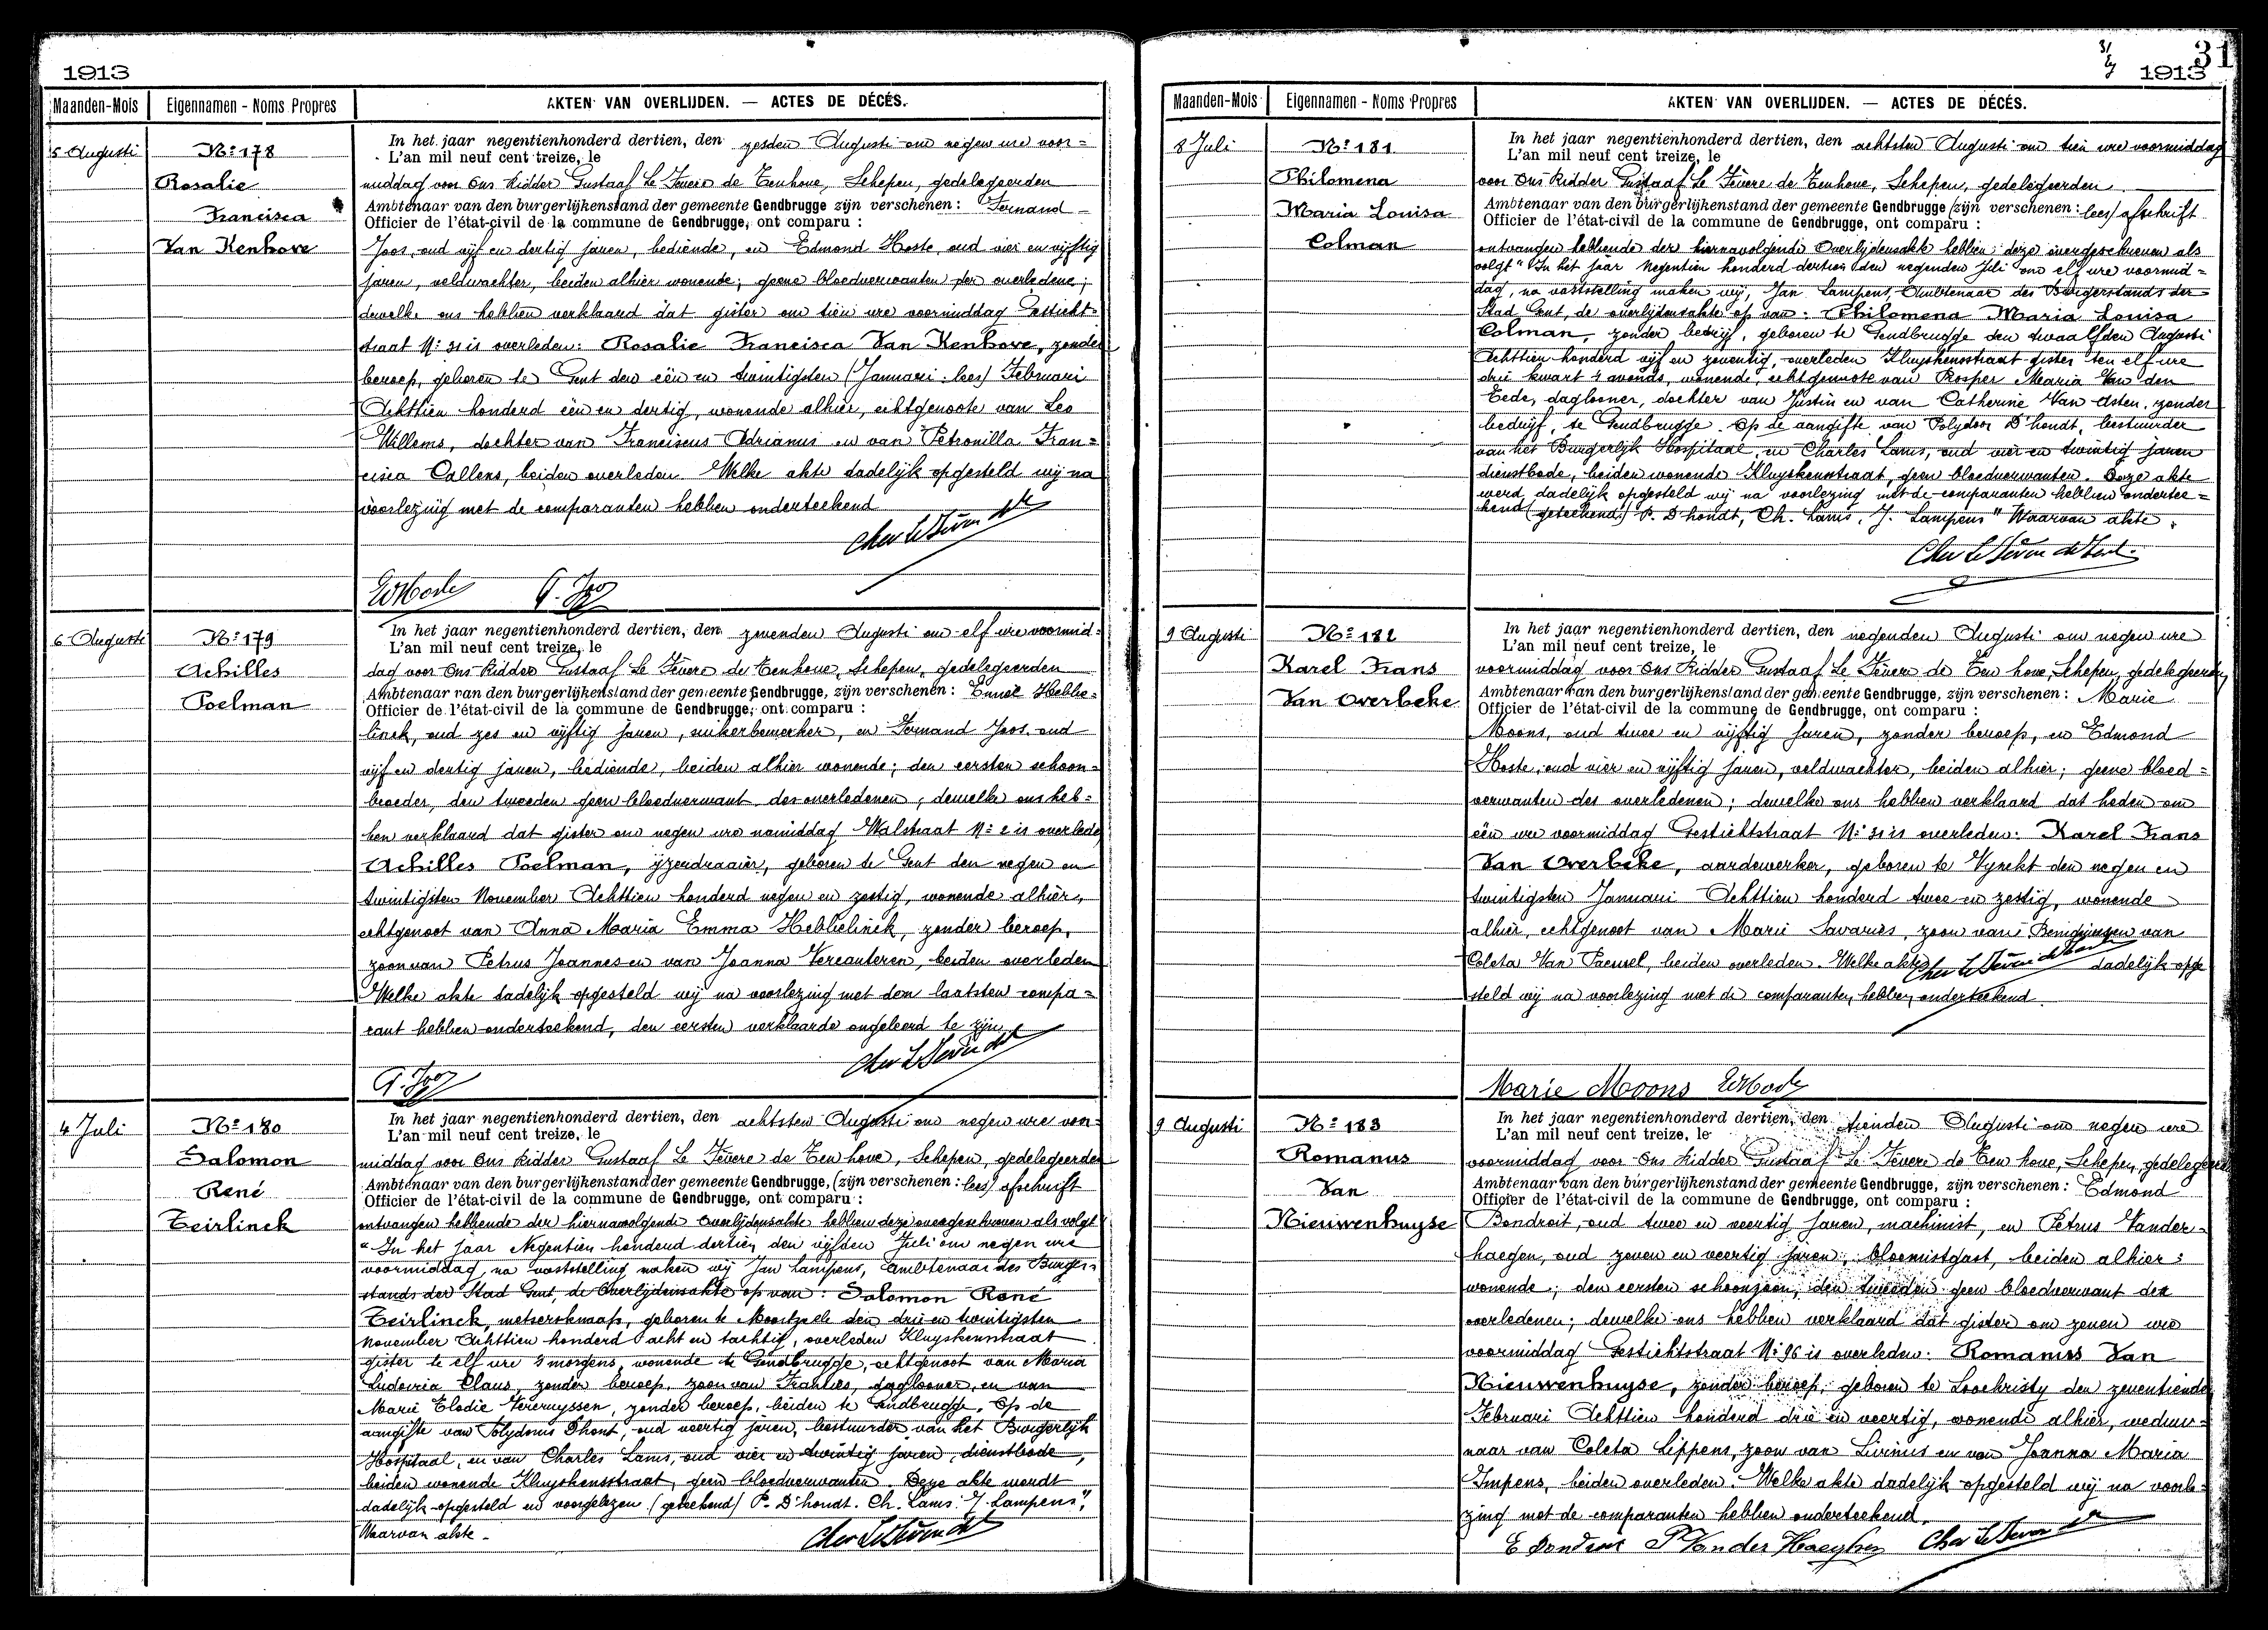 1913
Maanden-Mois Eigennamen - Noms Propres AKTEN VAN OVERLIJDEN. — ACTES DE DÉCÉS.
5 Augusti
Nº 178
Rosalie
Francisca
Van Kenhove
In het jaar negentienhonderd dertien, den zesden Augusti om negen ure voor=
L'an mil neuf cent treize, le
middag voor Ons Ridder Gustaaf Le Fevere de Tenhove, Schepen, gedelegeerden
Ambtenaar van den burgerlijkenstand der gemeente Gendbrugge zijn verschenen : Fernand
Officier de l'état-civil de la commune de Gendbrugge, ont comparu :
Joos, oud vijf en dertig jaren, bediende, en Edmond Hoste, oud vier en vijftig
jaren, veldwachter, beiden alhier wonende; geene bloedverwanten der overledene;
dewelke ons hebben verklaard dat gister om tien ure voormiddag Gesticht-
straat Nº 31 is overleden: Rosalie Francisca Van Kenhove, zonder
beroep, geboren te Gent den één en twintigsten (Januari: lees) Februari
Achttien honderd één en dertig, wonende alhier, echtgenoote van Leo
Willems, dochter van Franciscus Adrianus en van Petronilla Fran=
cisca Callens, beiden overleden. Welke akte dadelijk opgesteld wij na
voorlezing met de comparanten hebben onderteekend
6 Augusti
Nº 179
Achilles
Poelman
In het jaar negentienhonderd dertien, den zevenden Augusti om elf ure voormid=
L'an mil neuf cent treize, le
dag voor Ons Ridder Gustaaf Le Fevere de Tenhove, Schepen, gedelegeerden
Ambtenaar van den burgerlijkenstand der gemeente Gendbrugge, zijn verschenen : Emiel Hebbe=
Officier de l'état-civil de la commune de Gendbrugge, ont comparu :
linck, oud zes en vijftig jaren, suikerbewerker, en Fernand Joos, oud
vijf en dertig jaren, bediende, beiden alhier wonende; den eersten schoon=
broeder, den tweeden geen bloedverwant des overledenen; dewelke ons heb=
ben verklaard dat gister om negen ure namiddag Walstraat Nº 2 is overleden
Achilles Poelman, ijzerdraaier, geboren te Gent den negen en
twintigsten November Achttien honderd negen en zestig, wonende alhier,
echtgenoot van Anna Maria Emma Hebbelinck, zonder beroep,
zoon van Petrus Joannes en van Joanna Vercauteren, beiden overleden
Welke akte dadelijk opgesteld wij na voorlezing met den laatsten compa=
rant hebben onderteekend, den eersten verklaarde ongeleerd te zijn
4 Juli
Nº 180
Salomon
René
Teirlinck
In het jaar negentienhonderd dertien, den achtsten Augusti om negen ure voor=
L'an mil neuf cent treize, le
middag voor Ons Ridder Gustaaf Le Fevere de Ten hove, Schepen, gedelegeerden
Ambtenaar van den burgerlijkenstand der gemeente Gendbrugge, (zijn verschenen : lees) afschrift
Officier de l'état-civil de la commune de Gendbrugge, ont comparu :
ontvangen hebbende der hiernavolgende Overlijdensakte hebben deze overgeschreven als volgt
"In het jaar Negentien honderd dertien den vijfden Juli om negen ure
voormiddag, na vaststelling maken wij Jan Lampens, Ambtenaar des Burger=
stands der Stad Gent, de Overlijdensakte op van: Salomon René
Teirlinck, metserknaap, geboren te Moortzeele den drie en twintigsten
November Achttien honderd acht en tachtig, overleden Kluyskensstraat
gister te elf ure 's morgens, wonende te Gendbrugge, echtgenoot van Maria
Ludovica Claus, zonder beroep, zoon van Franties, daglooner, en van
Marie Elodie Vereruyssen, zonder beroep, beiden te Gendbrugge. Op de
aangifte van Polydorus Dhont, oud veertig jaren, bestuurder van het Burgerlijk
Hospitaal, en van Charles Lams, oud vier en twintig jaren, dienstbode,
beiden wonende Kluyskensstraat, geen bloedverwanten. Deze akte werdt
dadelijk opgesteld en voorgelezen (geteekend) P. D'hondt. Ch. Lams. J. Lampens".
Waarvan akte.
31
1913
Maanden-Mois Eigennamen - Noms Propres AKTEN VAN OVERLIJDEN. — ACTES DE DÉCÉS.
8 Juli
Nº 181
Philomena
Maria Louisa
Colman
In het jaar negentienhonderd dertien, den achtsten Augusti om tien ure voormiddag
L'an mil neuf cent treize, le
voor Ons Ridder Gustaaf Le Fevere de Tenhove, Schepen, gedelegeerden
Ambtenaar van den burgerlijkenstand der gemeente Gendbrugge (zijn verschenen : lees) afschrift
Officier de l'état-civil de la commune de Gendbrugge, ont comparu :
ontvangen hebbende der hiernavolgende Overlijdensakte hebben deze overgeschreven als
volgt "In het jaar Negentien honderd dertien den negenden Juli om elf ure voormid=
dag, na vaststelling maken wij, Jan Lampens, Ambtenaar des Burgerstands der
Stad Gent, de overlijdensakte op van: Philomena Maria Louisa
Colman, zonder bedrijf, geboren te Gendbrugge den twaalfden Augusti
Achttien honderd vijf en zeventig, overleden Kluyskensstraat gister ten elf ure
drie kwart 's avonds, wonende, echtgenoote van Prosper Maria Van den
Eede, daglooner, dochter van Justin en van Catherine Van Asten, zonder
bedrijf, te Gendbrugge. Op de aangifte van Polydoor D'hondt, bestuurder
van het Burgerlijk Hospitaal, en Charles Lams, oud vier en twintig jaren
dienstbode, beiden wonende Kluyskensstraat, geen bloedverwanten. Deze akte
werd dadelijk opgesteld wij na voorlezing met de comparanten hebben ondertee=
kend (geteekend) P. D'hondt, Ch. Lams, J. Lampens" Waarvan akte.
9 Augusti
Nº 182
Karel Frans
Van Overbeke
In het jaar negentienhonderd dertien, den negenden Augusti om negen ure
L'an mil neuf cent treize, le
voormiddag voor Ons Ridder Gustaaf Le Fevere de Ten hove, Schepen, gedelegeerden
Ambtenaar van den burgerlijkenstand der gemeente Gendbrugge, zijn verschenen : Marie
Officier de l'état-civil de la commune de Gendbrugge, ont comparu :
Moons, oud twee en vijftig jaren, zonder beroep, en Edmond
Hoste, oud vier en vijftig jaren, veldwachter, beiden alhier; geene bloed=
verwanten des overledenen; dewelke ons hebben verklaard dat heden om
één ure voormiddag Gestichtstraat Nº 31 is overleden: Karel Frans
Van Overbeke, aardewerker, geboren te Vynckt den negen en
twintigsten Januari Achttien honderd twee en zestig, wonende
alhier, echtgenoot van Marie Savaries, zoon van Benignus en van
Coleta Van Paemel, beiden overleden. Welke akte dadelijk opge
steld wij na voorlezing met de comparanten hebben onderteekend
Marie Moons
9 Augusti
Nº 183
Romanus
Van
Nieuwenhuyse
In het jaar negentienhonderd dertien, den tienden Augusti om negen ure
L'an mil neuf cent treize, le
voormiddag voor Ons Ridder Gustaaf Le Fevere de Ten hove, Schepen, gedelegeerden
Ambtenaar van den burgerlijkenstand der gemeente Gendbrugge, zijn verschenen : Edmond
Officier de l'état-civil de la commune de Gendbrugge, ont comparu :
Bondroit, oud twee en veertig jaren, machinist, en Petrus Vander-
haegen, oud zeven en veertig jaren, bloemistgast, beiden alhier
wonende; den eersten schoonzoon, den tweeden geen bloedverwant des
overledenen; dewelke ons hebben verklaard dat gister om zeven ure
voormiddag Gestichtstraat Nº 96 is overleden: Romanus Van
Nieuwenhuyse, zonder beroep, geboren te Loochristy den zeventienden
Februari Achttien honderd drie en veertig, wonende alhier, weduw=
naar van Coleta Lippens, zoon van Livinus en van Joanna Maria
Impens, beiden overleden. Welke akte dadelijk opgesteld wij na voorle=
zing met de comparanten hebben onderteekend.